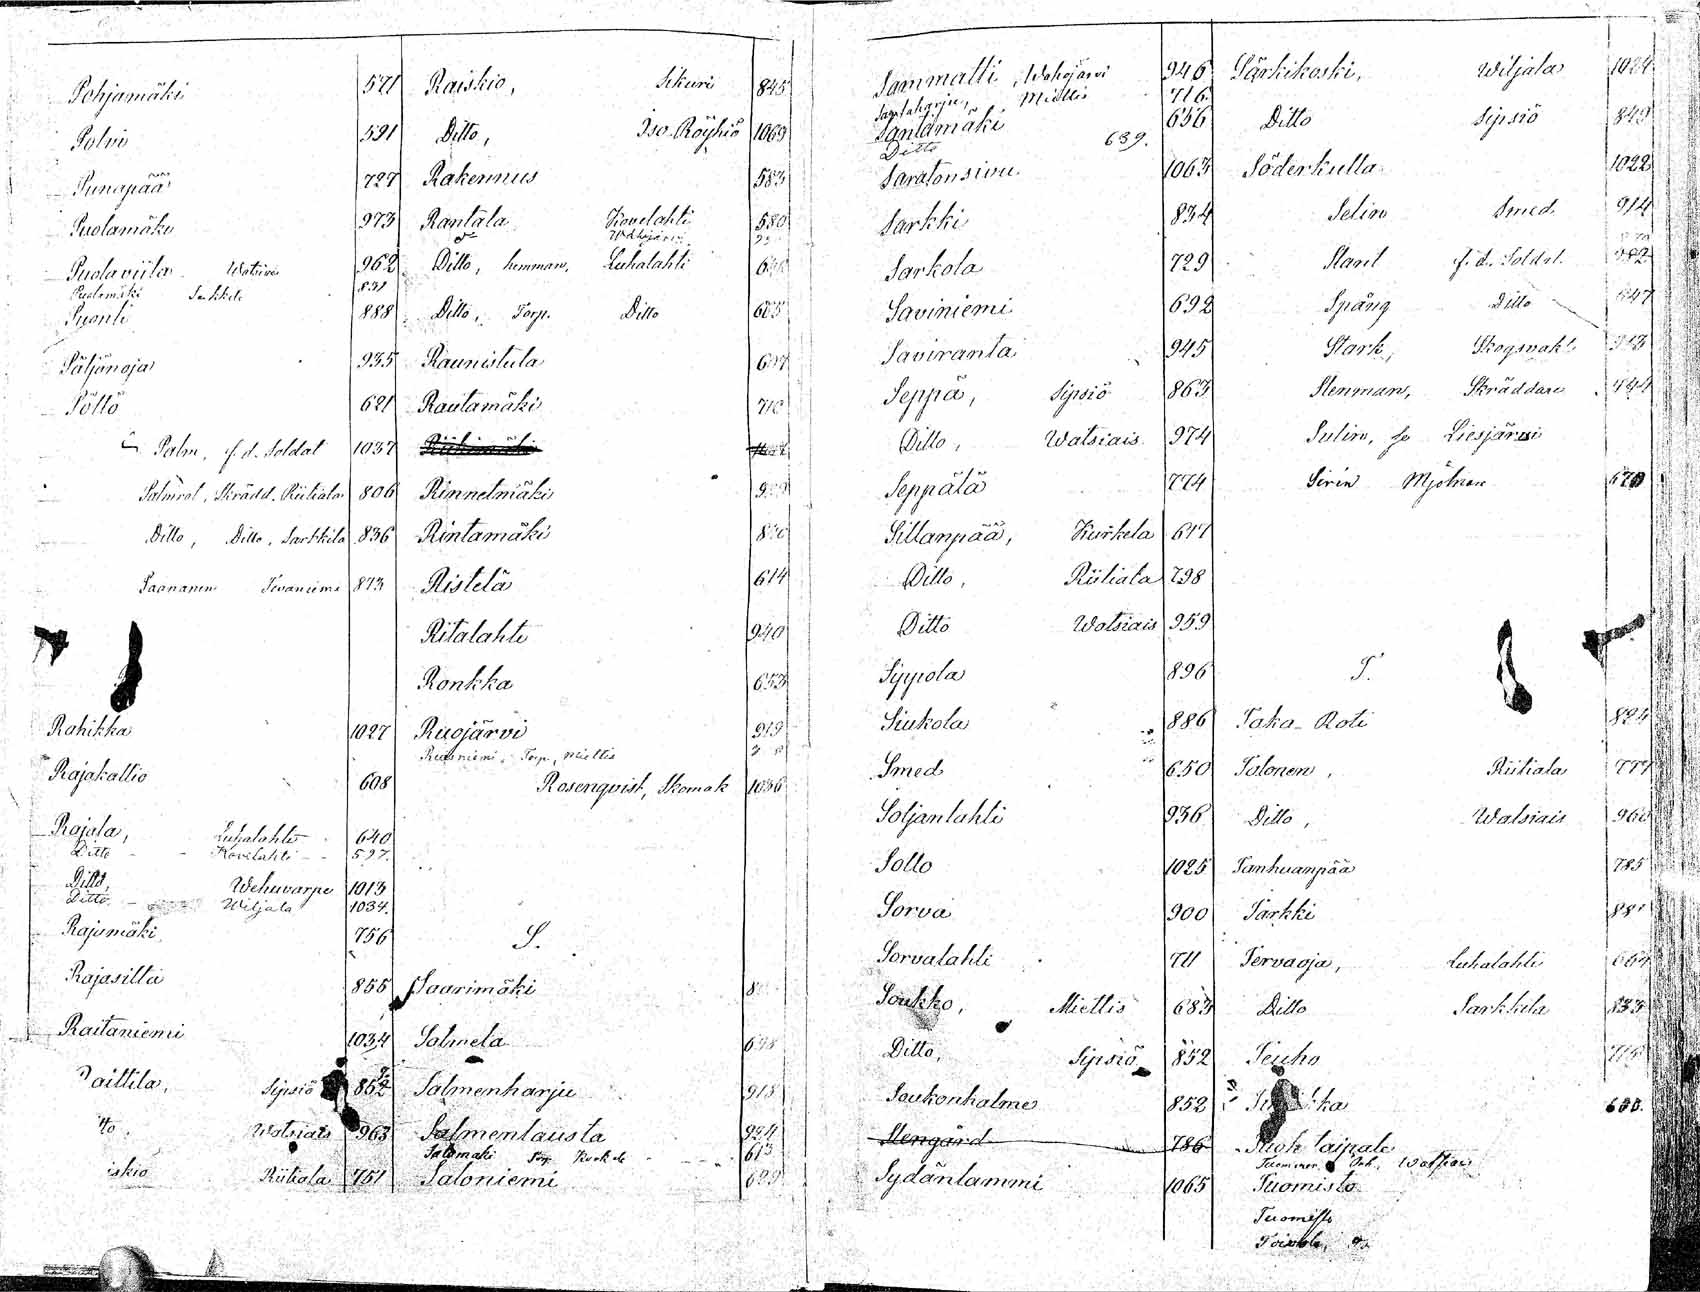 Pohjamäki 571
Polvi 591
Punapää 727
Puolamäki 973
Puolaviita 962
Puolamäki 831
Puonti 888
Päljänoja 935
Pöllö 621
Palm, f. d. Soldat 1037
Skrädd. Riitiala 806
Ditto, Ditto, Sarkkila 836
Paananen 873
Rahikka 1027
Rajakallio 608
Rajala, Luhalahti 640
Ditto Kovelahti 597
Ditto, Wehuvarpe 1013
Ditto Wiljala 1034
Rajamäki 756
Rajasilta 855
Raitaniemi 1034
aittila, Sipsiö 852
Watsiais 963
iskio Riitiala 751
Raiskio, Sikuri 845
Ditto, Iso-Röyhiö 1069
Rakennus 583
Rantala Kovelahti 580
Ditto, hemman, Luhalahti
Ditto, Torp. Ditto 665
Raunistula
Rautamäki 710
Riihimäki
Rinnetmäki
Rintamäki
Ristelä 614
Ritalahti 940
Ronkka 653
Ruojärvi 919
Ruisniemi, Torp, Miettis
Rosenqvist, Skomak 1036
S.
Saarimäki
Salmela
Salmenharju 918
Salmentausta 924
Salomäki 613
Saloniemi
Sammatti, Wahojärvi 946
Santaharju, Miettis 716
Santamäki 656
Ditto 639.
Saratonsivu 1063
Sarkki 834
Sarkola 729
Saviniemi 692
Saviranta 945
Seppä, Sipsiö 863
Ditto, Watsiais 974
Seppälä 774
Sillanpää, Kurkela 617
Ditto, Riitiala 798
Ditto Watsiais 959
Sippola 896
Siukola 886
Smed 650
Soljanlahti 936
Sollo 1025
Sorva 900
Sorvalahti 711
Soukko, Miettis 683
Ditto, Sipsiö 852
Soukonkalme 852
Stengård 786
Sydänlammi 1065
Särkikoski, Wiljala 1024
Ditto Sipsiö 849
Söderkulla 1022
Selin Smed 914
Starel f. d. Soldat
Spång Ditto 647
Stark, Skogsvakt
Stenman, Skräddare
Sulin, Liesjärvi
Sirén Mjölnare 670
T.
Taka-Roti 824
Talonen, Riitiala 777
Ditto, Watsiais 960
Tanhuanpää 785
Tarkki
Tervaoja, Luhalahti 664
Ditto Sarkkila 833
Teuho
taipale
Tuomisto
Tuomisto
Toivola,